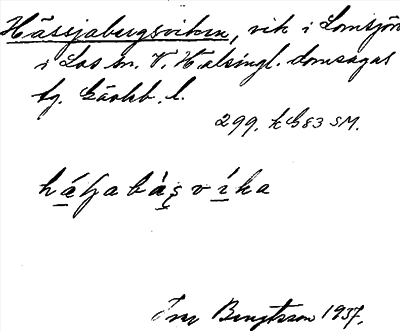 Hässjabergsviken, vik i Lomsjön
i Los sn. V. Hälsingl. domsagas
tg. Gävleb. l.
299. kG83 SM.
háʃabàs̱ víka
Bengtsson 1937.